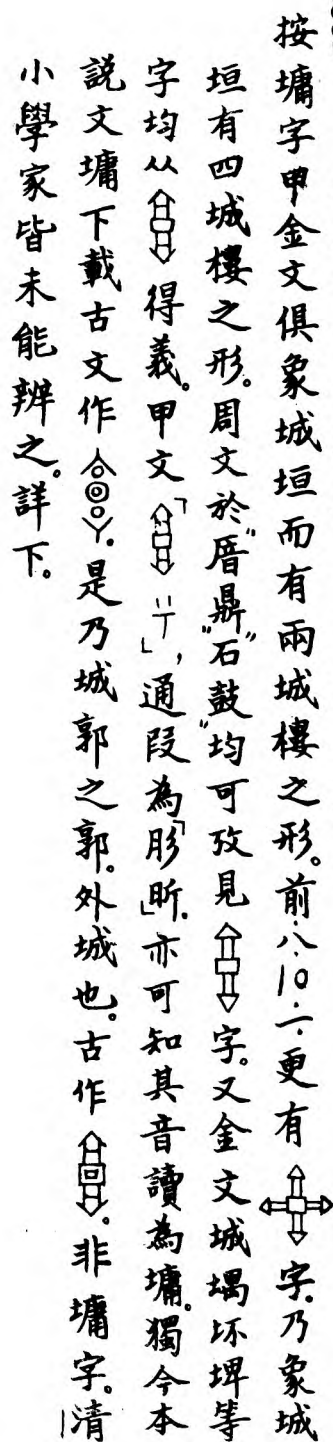 按墉字甲金文俱象城垣而有兩城樓之形。前.八.10.一.更有字.乃象城
垣有四城樓之形。周文於"厝鼎"石鼓"均可攷見字。又金文城堨坏埤等
字均从得義。甲文「」,通段為「肜昕」.亦可知其音讀為墉。獨今本
説文墉下載古文作.是乃城郭之郭。外城也。古作。非墉字。清
小學家皆未能辨之。詳下。